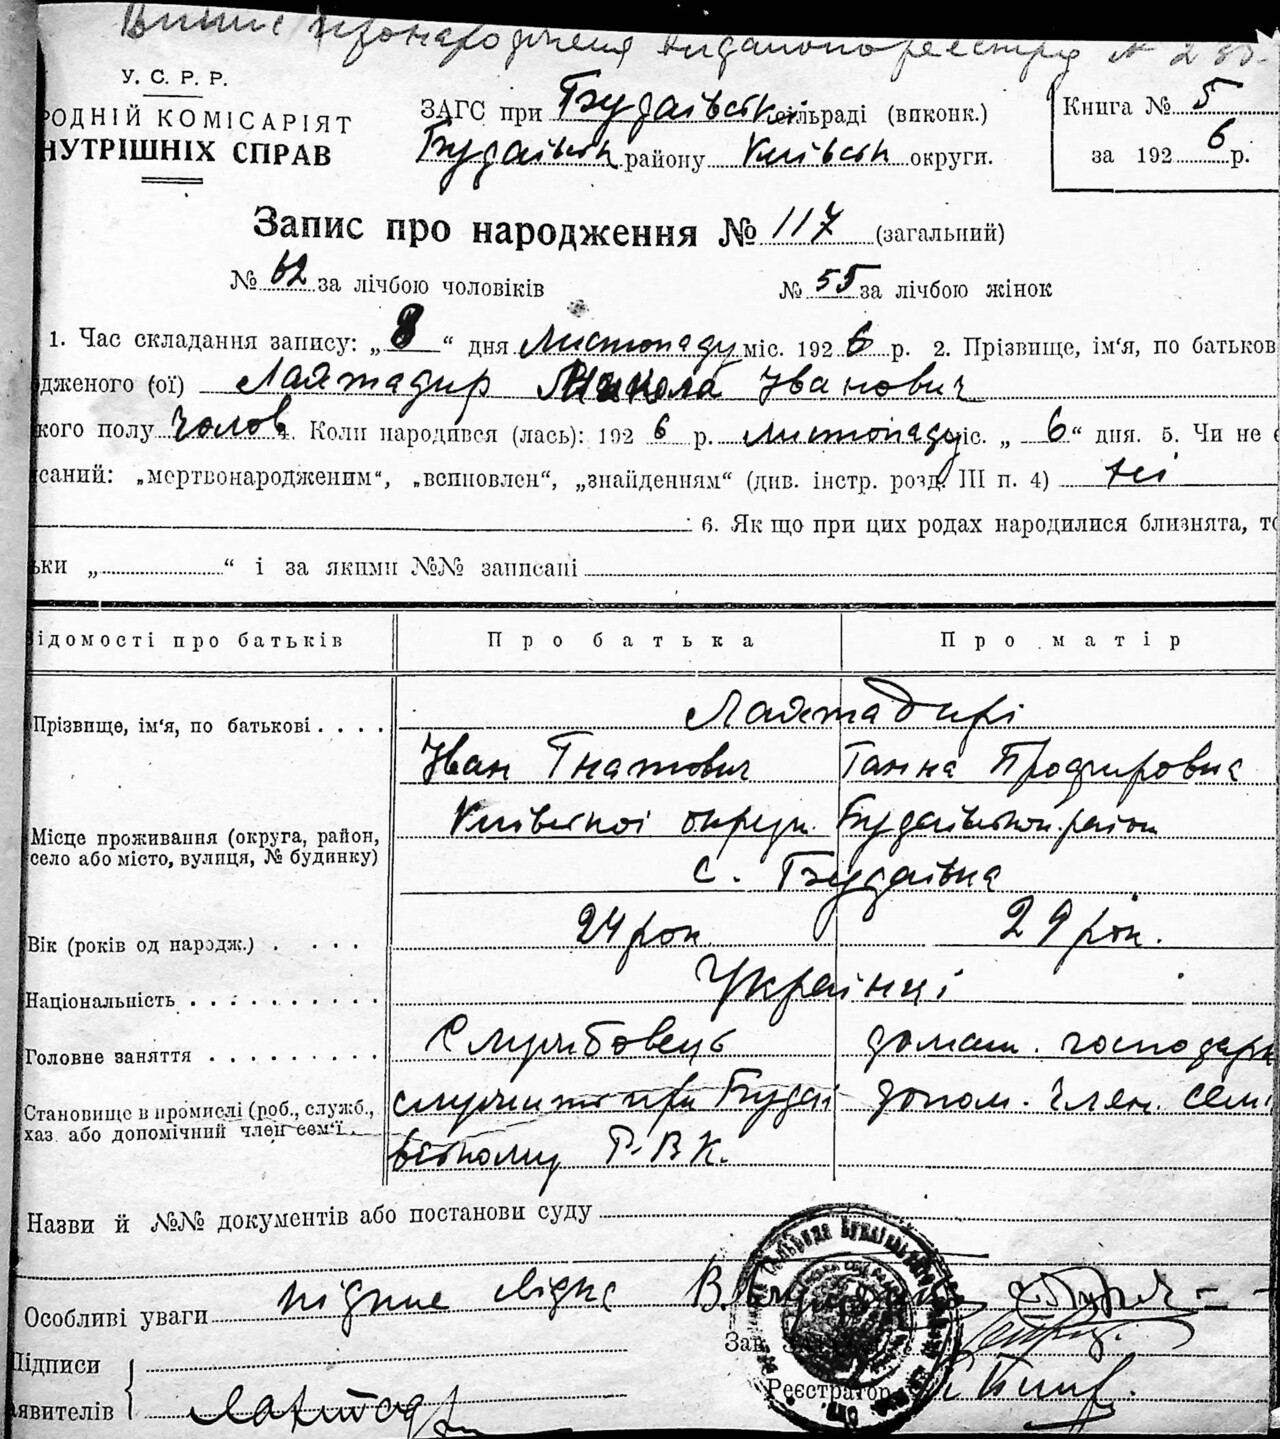 Випис про народження видано по реєстру №
У. С. Р. Р.
РОДНІЙ КОМІСАРІЯТ
НУТРІШНІХ СПРАВ
ЗАГС при Будаївській сільраді (виконк.)
Будаївськ району Київськ округи.
Книга № 5
за 1926 р.
Запис про народження № 117 (загальний)
№ 62 за лічбою чоловіків № 55 за лічбою жінок
1. Час складання запису: „ 8 “ дня Листопаду міс. 1926 р. 2. Прізвище, ім'я, по батьков
дженого (ої) Лаятадир Микола Іванович
кого полу чолов 4. Коли народився (лась): 1926 р. листопаду міс. „ 6 “ дня. 5. Чи не є
саний: „мертвонародженим“, „всиновлен“, „знайденням“ (див. інстр. розд. III п. 4) ні
6. Як що при цих родах народилися близнята, то
ьки „ “ і за якими №№ записані
ідомості про батьків Про батька Про матір
Прізвище, ім'я, по батькові . . . . Лаятадирі
Іван Гнатович Ганна Прохировна
Місце проживання (округа, район, село або місто, вулиця, № будинку) Київської округи Будаївськ. район
с. Будаївка
Вік (років од народж.) . . . . 24 рок. 29 рок.
Національність . . . . . . . . . . Українці
Головне заняття . . . . . . . . . Службовець домаш. господарк
Становище в промислі (роб., служб., хаз. або допомічний член сем'ї. служить при Будаї допом. член. семї
вському Р.В.К.
Назви й №№ документів або постанови суду
Особливі уваги
Зав.
Підписи
явителів
Реєстратор